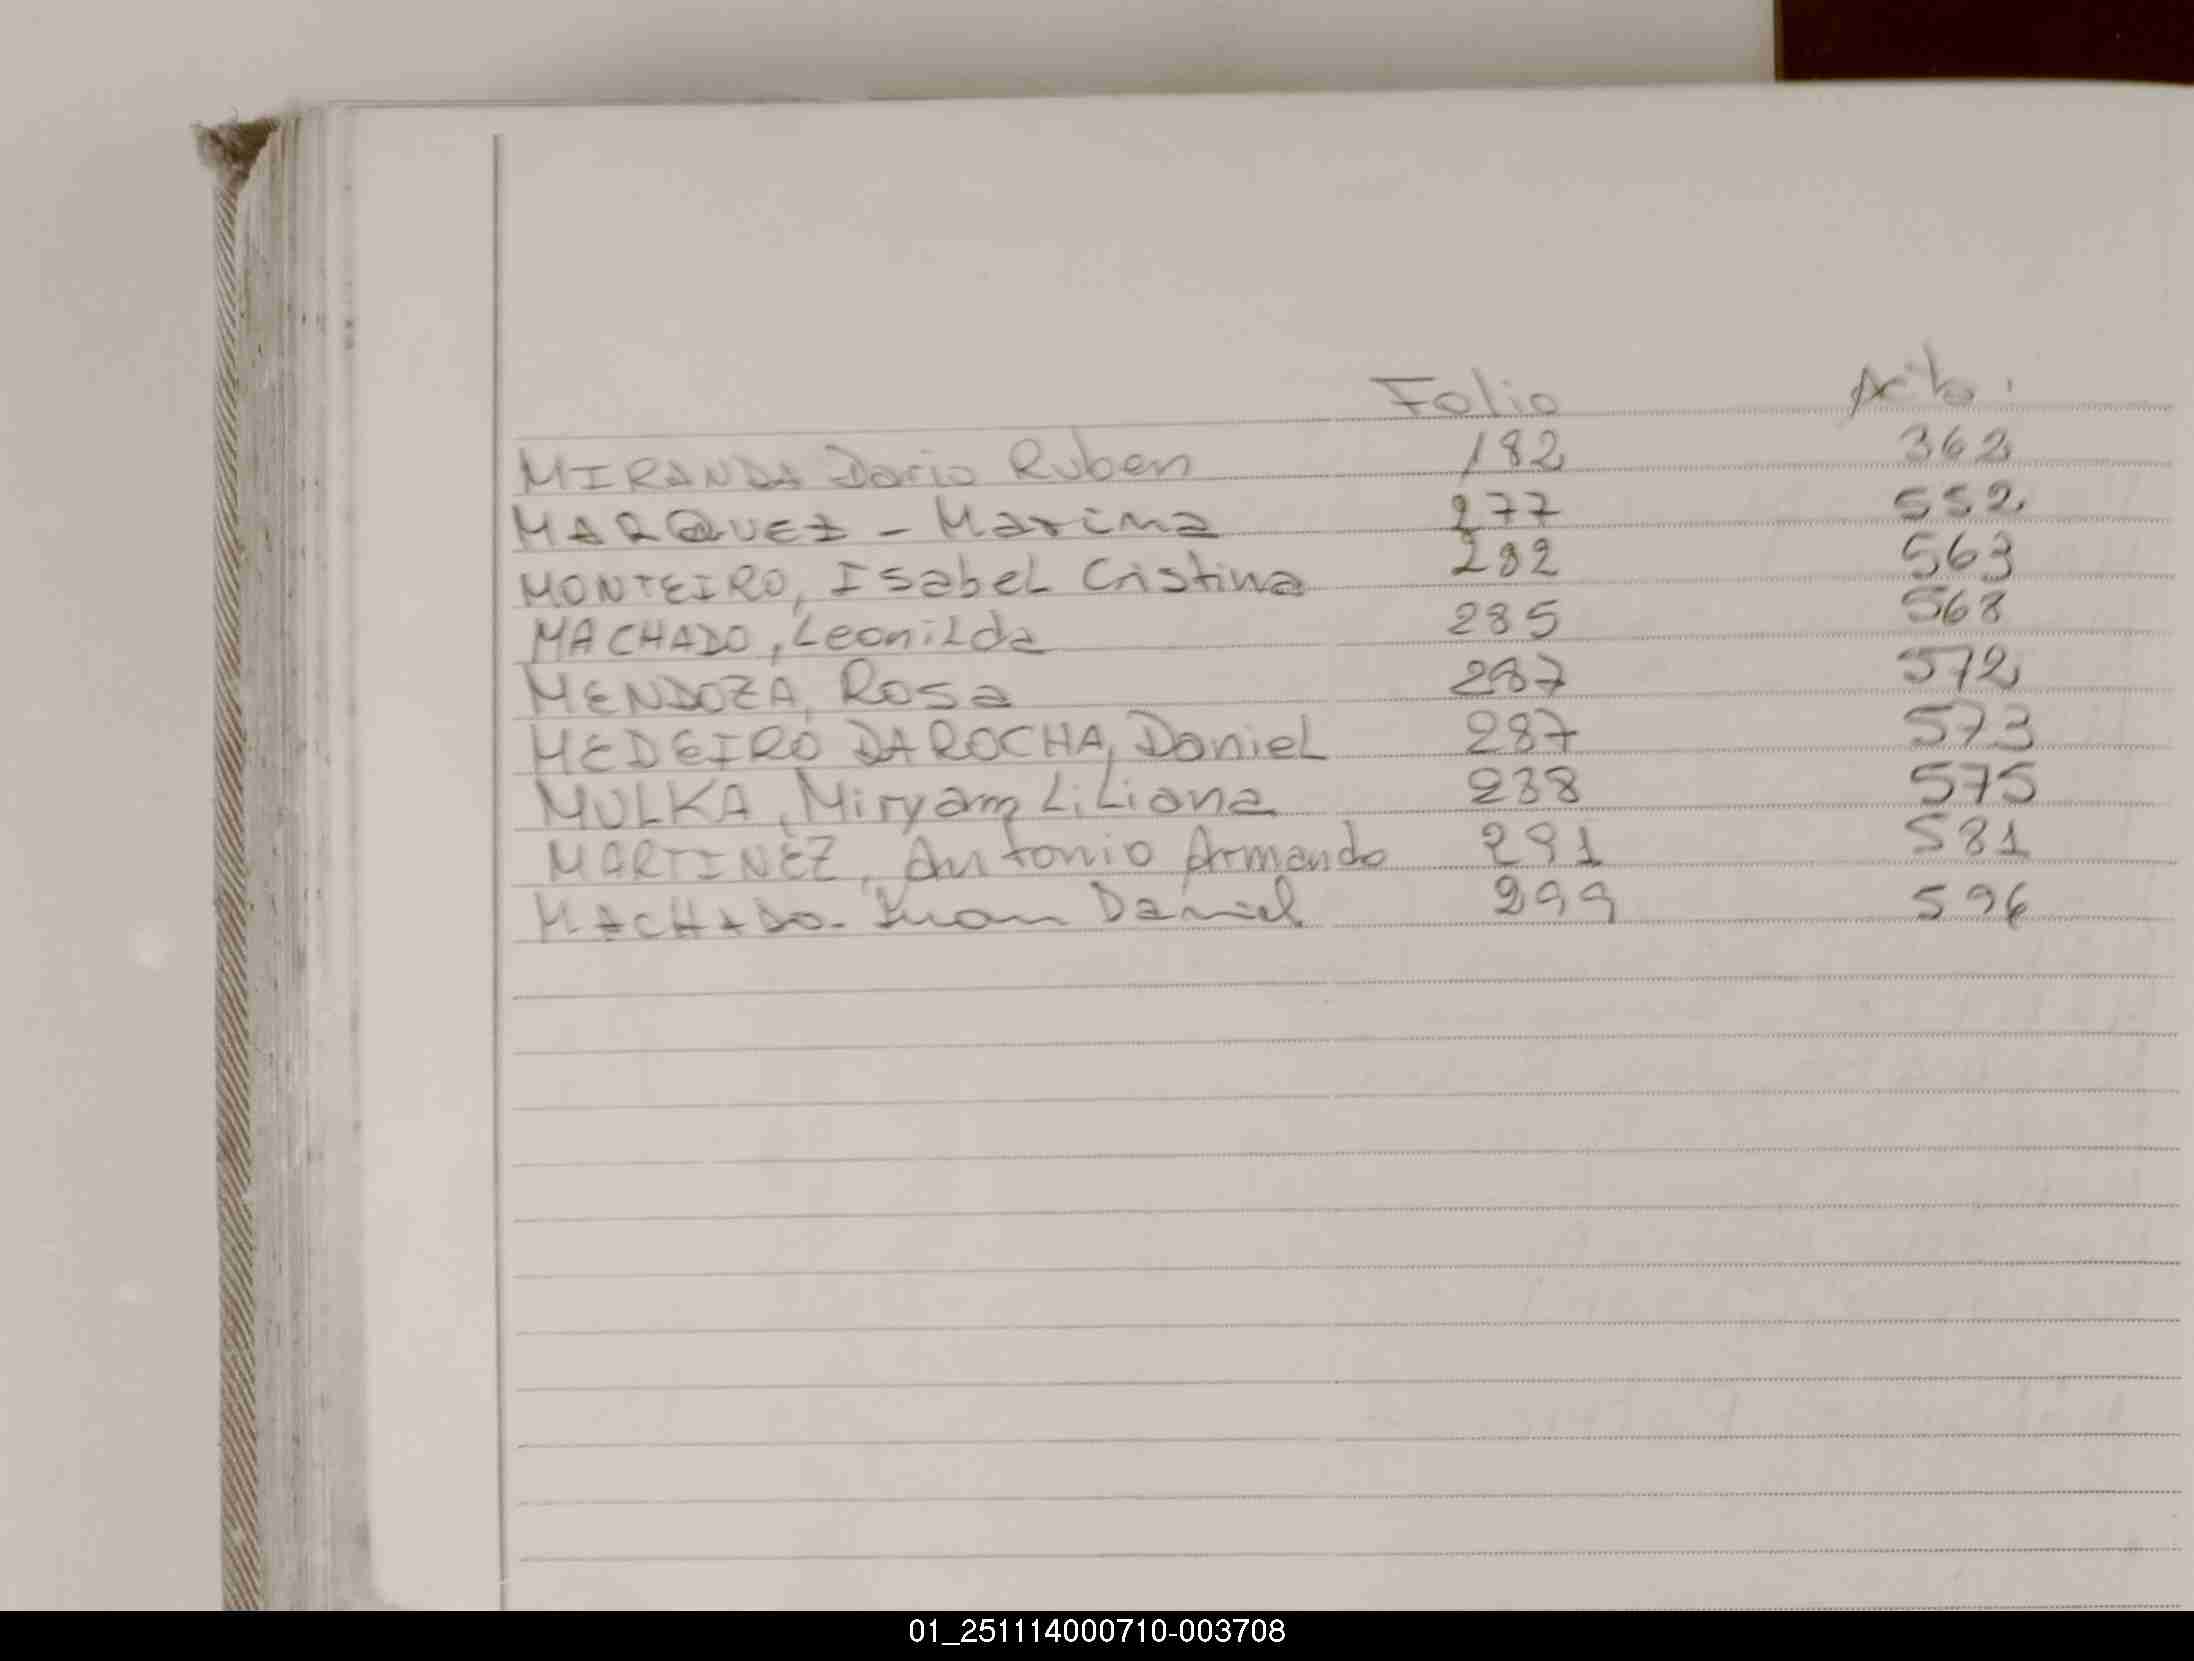 Folio Acta.
MIRANDA Dario Ruben 182 362
MARQUEZ - Marina 277 552
MONTEIRO, Isabel Cristina 282 563
MACHADO, Leonilda 285 568
MENDOZA, Rosa 287 572
MEDEIRO DAROCHA, Daniel 287 573
MULKA, Miryam Liliana 288 575
MARTINEZ, Antonio Armando 291 581
MACHADO - Juan Daniel 299 596
01_251114000710-003708